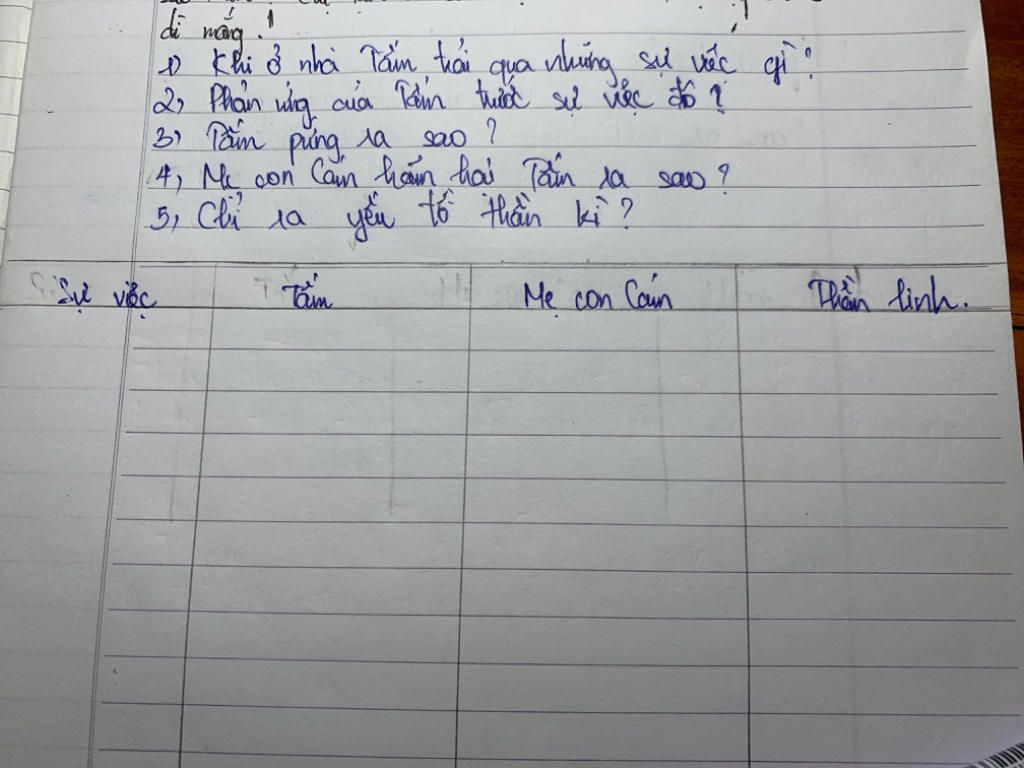 di mắng.
1) Khi ở nhà Tấm trải qua những sự việc gì?
2, Phản ứng của Tấm trước sự việc đó?
3) Tấm pứng ra sao?
4, Mẹ con Cám hãm hại Tấm ra sao?
5, Chỉ ra yếu tố thần kì?
Sự việc Tấm Mẹ con Cám Thần linh.